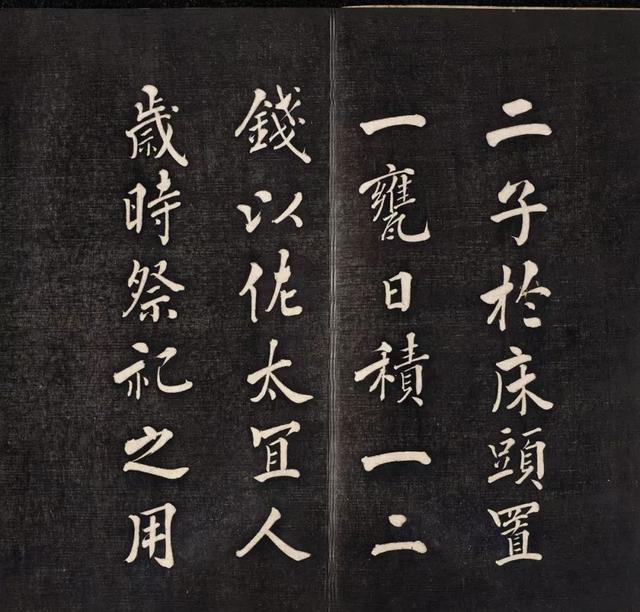 二子於床頭置
一甕日積一二
錢以佐太宜人
歲時祭祀之用